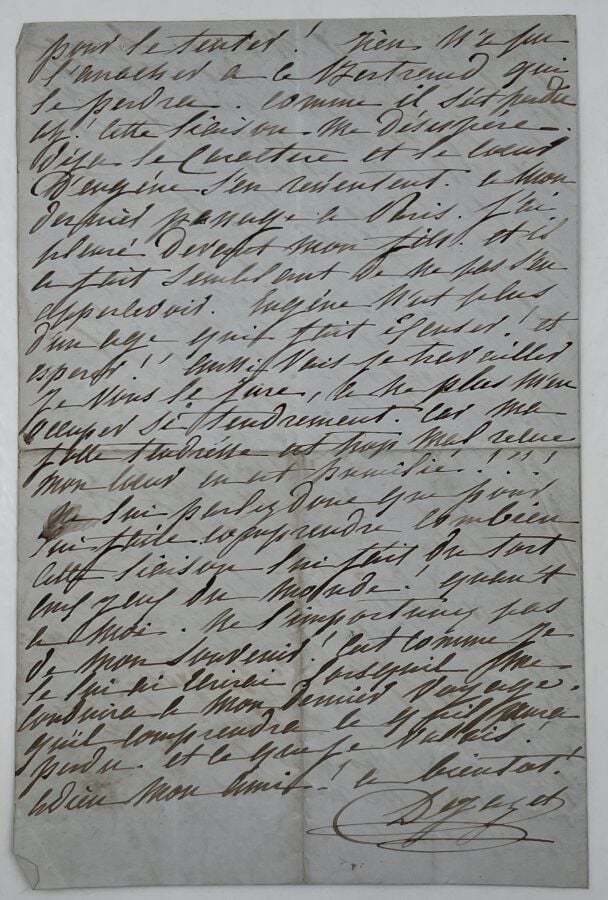 pour le tenter ! Rien n'a pu
l'arracher a la Bertrand qui
le perdra. comme il s'est perdu
ah ! cette liaison me désespère.
Déja le caractere et le cœur
D'eugène s'en ressentent. a mon
dernier passage a Paris. j'ai
pleuré devant mon fils. et il
a fait semblant de ne pas s'en
appercevoir. Eugène n'est plus
d'un age qui fait excuser ! et
esperer ! aussi vais je travailler
je vous le jure, a ne plus m'en
occuper si tendrement. car ma
folle tendresse est trop mal reçue
mon cœur en est humilié ! ! ! !
ne lui parlez donc que pour
lui faire comprendre combien
cette liaison lui fait du tort
aux yeux du monde ! quant
a moi. ne l'importunez pas
de mon souvenir ! c'est comme je
le lui ai écrit lorsqu'il me
conduira a mon dernier voyage.
qu'il comprendra ce qu'il aura
perdu. et ce que je valais.
adieu mon ami ! a bientot !
Dejazet